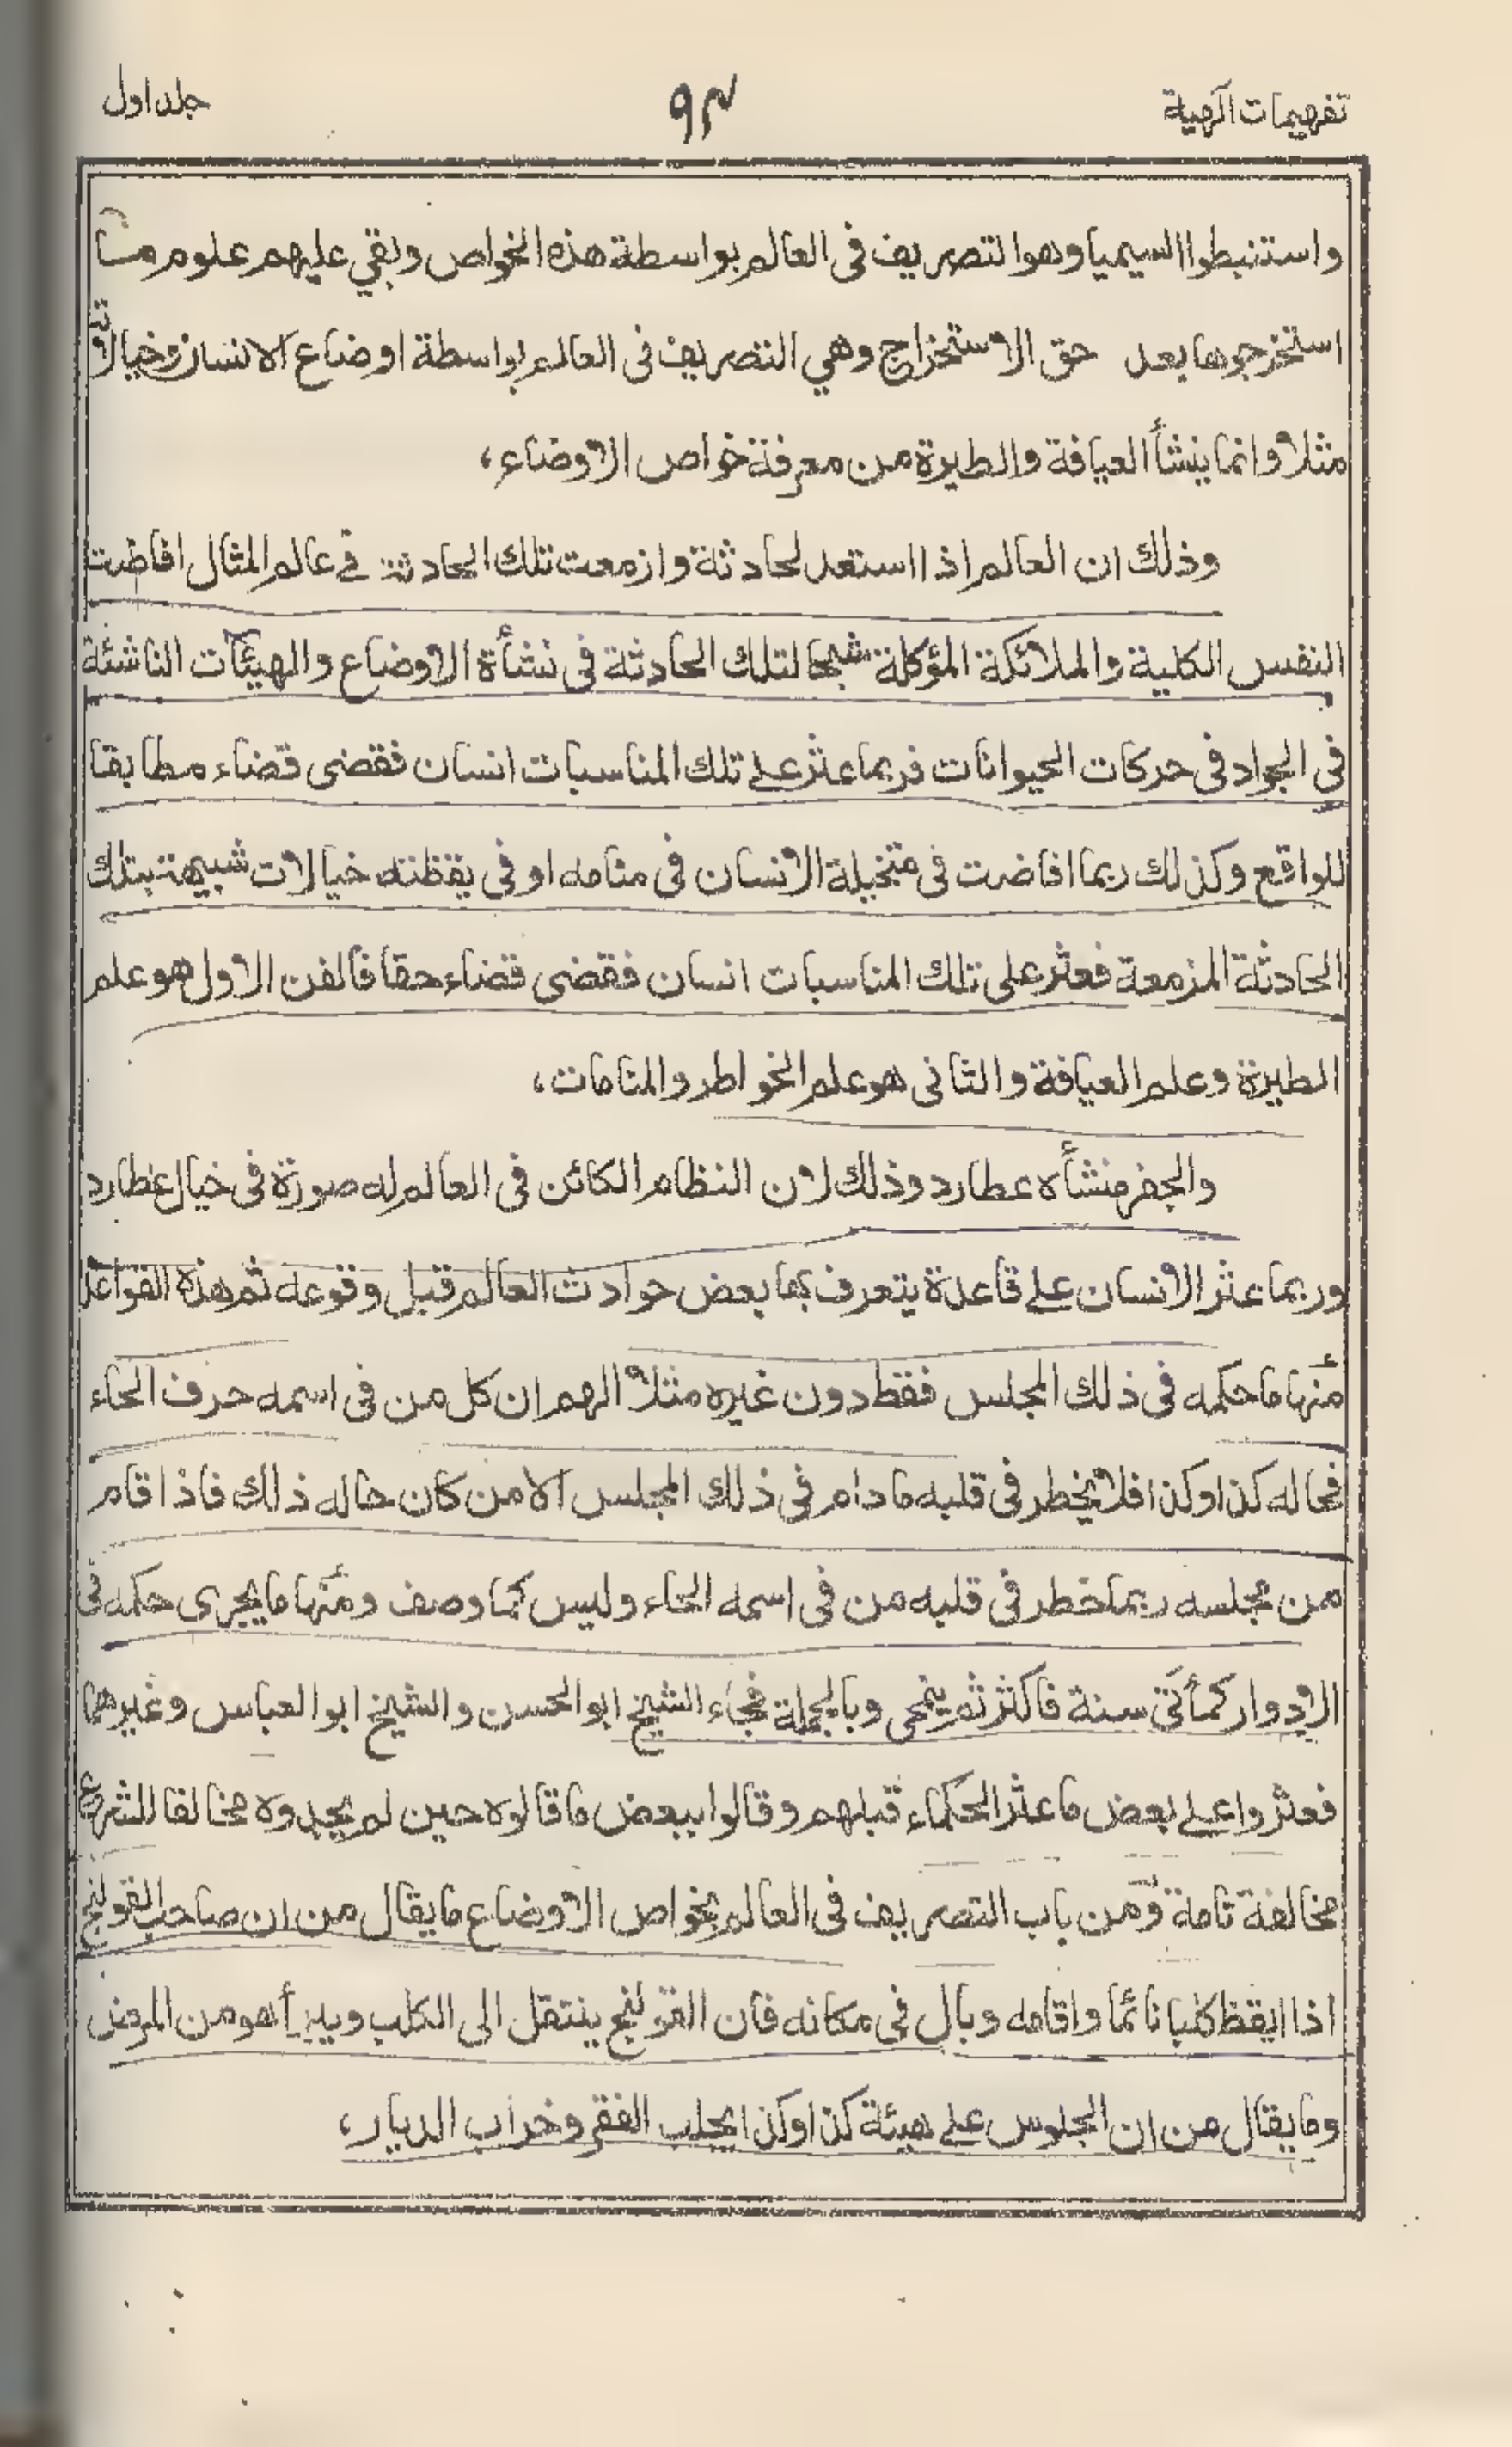 تفهيمات آلهية ٩٢ جلد اول
واستنبطوا السيميا وهو التصريف فى العالم بواسطة هذه الخواص وبقي عليهم علوم ما
استخرجوها بعد حق الاستخراج وهي التصريف فى العالم بواسطة اوضاع الانسان وخيالاته
مثلا وانما ينشأ العيافة والطيرة من معرفة خواص الاوضاع،
وذلك ان العالم اذا استعد لحادثة وازمعت تلك الحادثة فى عالم المثال افاضت
النفس الكلية والملائكة المؤكلة شبحا لتلك الحادثة فى نشأة الاوضاع والهيئآت الناشئة
فى الجواد فى حركات الحيوانات فربما عثر على تلك المناسبات انسان فقضى قضاء مطابقا
للواقع وكذلك ربما افاضت فى متخيلة الانسان فى منامه او فى يقظته خيالات شبيهة بتلك
الحادثة المزمعة فعثر على تلك المناسبات انسان فقضى قضاء حقا فالفن الاول هو علم
الطيرة وعلم العيافة والثانى هو علم الخواطر والمنامات،
والجفر منشأه عطارد وذلك لان النظام الكائن فى العالم له صورة فى خيال عطارد
وربما عثر الانسان على قاعدة يتعرف بها بعض حوادث العالم قبل وقوعه ثم هذه القواعد
منها ما حكمه فى ذلك المجلس فقط دون غيره مثلا الهم ان كل من فى اسمه حرف الحاء
فحاله كذا وكذا فلا يخطر فى قلبه ما دام فى ذلك المجلس الا من كان حاله ذلك فاذا قام
من مجلسه ربما خطر فى قلبه من فى اسمه الحاء وليس كما وصف ومنها ما يجرى حكمه فى
الادوار كمأتى سنة فاكثر ثم ينمحى وبالجملة فجاء الشيخ ابو الحسن والشيخ ابو العباس وغيرهما
فعثروا على بعض ما عثر الحكماء قبلهم وقالوا ببعض ما قالوه حين لم يجدوه مخالفا للشرع
مخالفة تامة ومن باب التصريف فى العالم بخواص الاوضاع ما يقال من ان صاحب القولنج
اذا ايقظ كلبا نائما واقامه وبال فى مكانه فان القولنج ينتقل الى الكلب ويبرأ هو من المرض
وما يقال من ان الجلوس على هيئة كذا وكذا يجلب الفقر وخراب الديار،